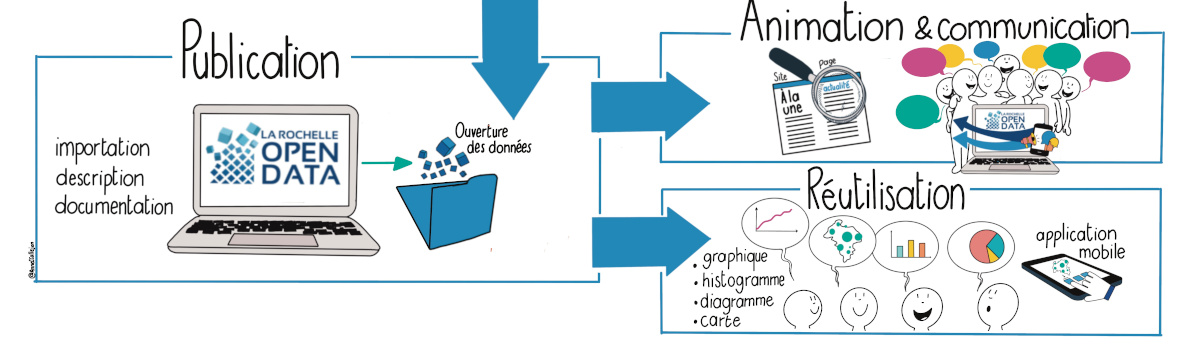 Publication
importation
description
documentation
LA ROCHELLE
OPEN
DATA
Ouverture
des données
Animation & communication
Site
Page
À la
une
actualité
LA ROCHELLE
OPEN
DATA
Réutilisation
• graphique
• histogramme
• diagramme
• carte
application
mobile